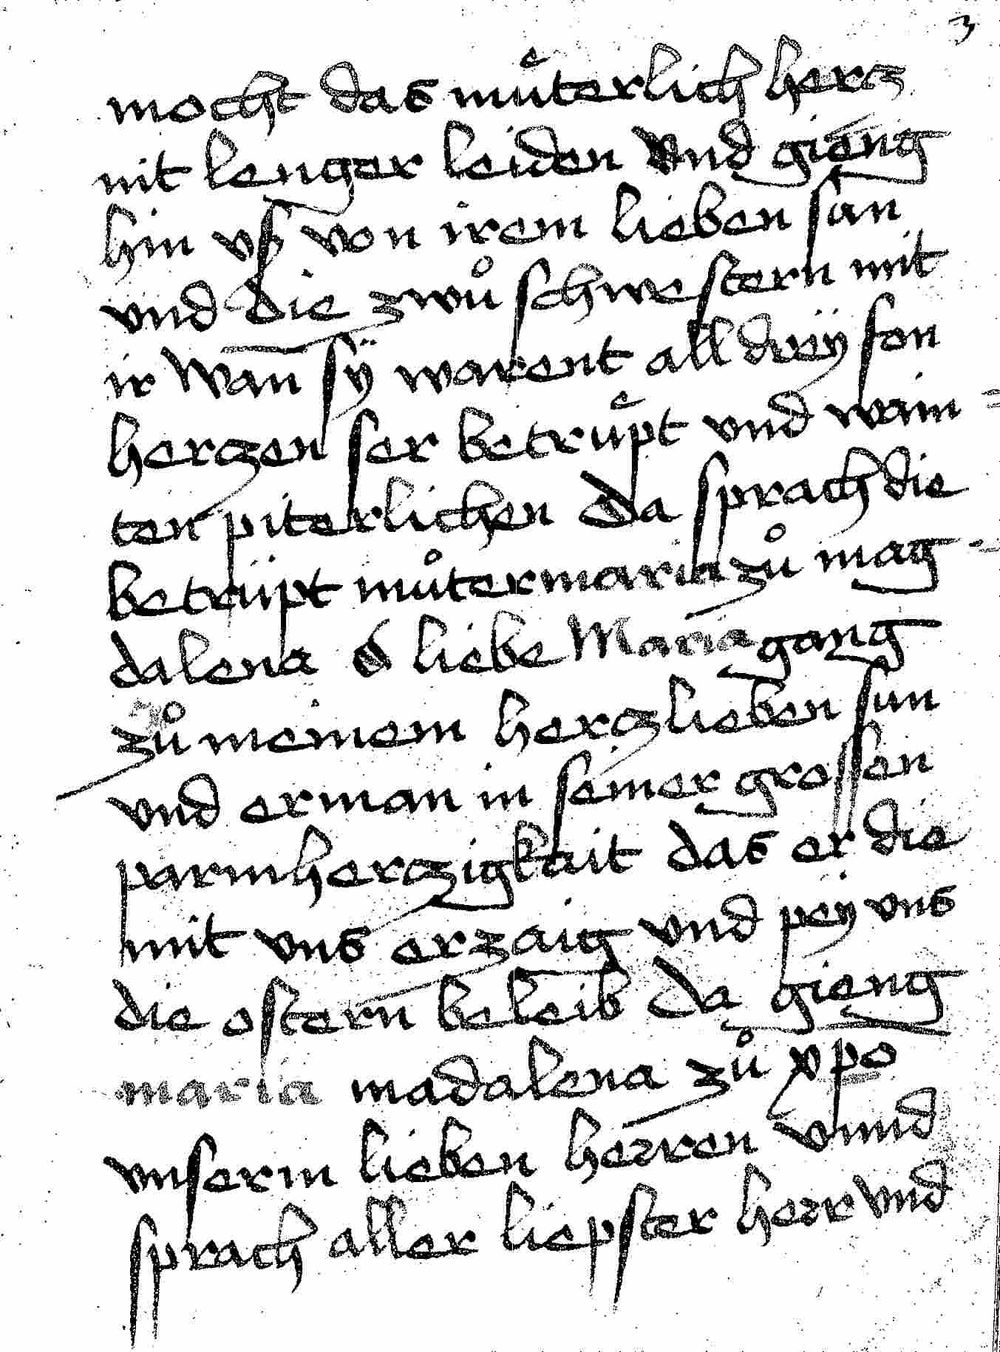 3
mocht das muͤterlich hercz
nit lenger leiden Vnd gieng
hin vß von irem lieben sun
vnd die zwuͦ schwestern mit
ir Wan̄ sÿ warent all dreÿ von
herczen ser betruͤpt vnd wain =
ten piterlichen Da sprach die
betrüpt muͦter maria zuͦ mag =
dalena O liebe Maria gang
zuͦ meinem herczlieben sun
vnd erman in seiner grossen
parmherczigkait das er die
mit vns erzaig vnd peÿ vns
die ostern beleib Da gieng
maria madalena zuͦ xp̄o
vnserm lieben herren Vnnd
sprach aller liepster herr Vnd